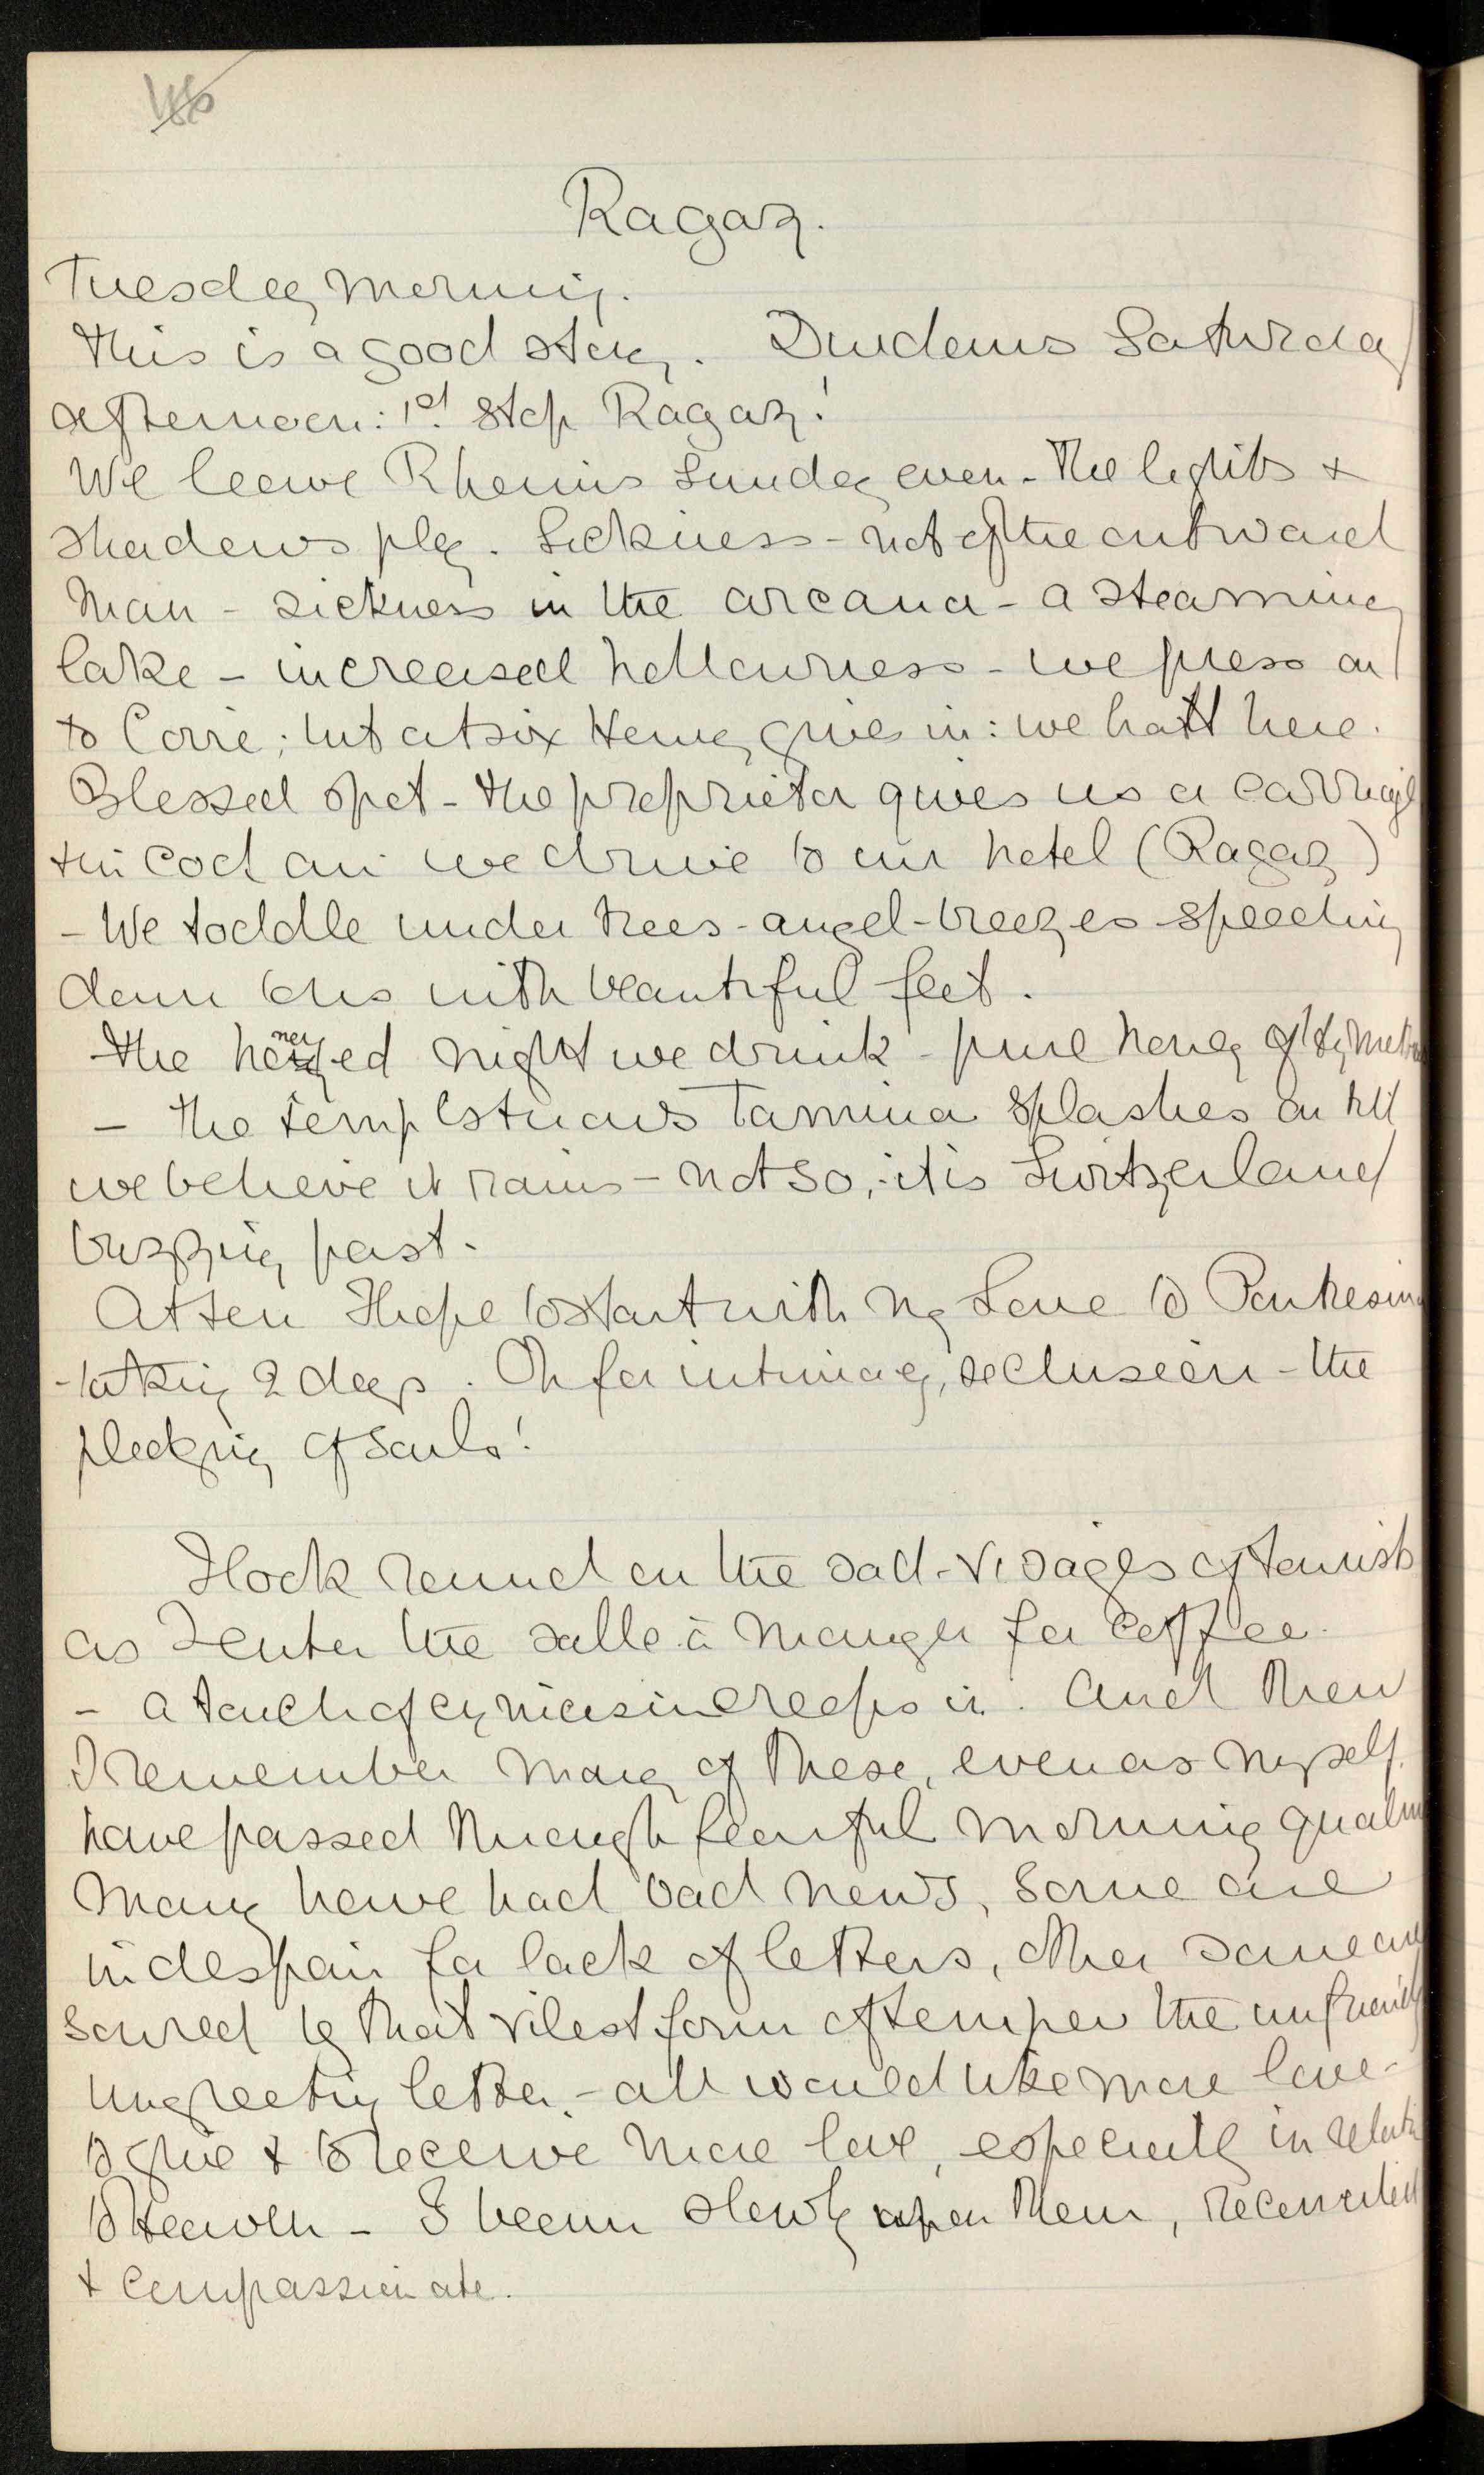 Ragaz.
Tuesday morning.
This is a good story. Durdans Saturday
afternoon: 1st stop Ragaz!
We leave Rheims Sunday even - the lights &
shadows play. Sickness - not of the outward
man - sickness in the arcana - a steaming
lake - increased hollowness - we press on
to Coire; but at six Henry gives in: we halt here.
Blessed spot - the proprietor gives us a carriage
& in cool air we drive to our hotel (Ragaz)
- We toddle under trees - angel-breezes speeding
down to us with beautiful feet.
The honeyed night we drink - pure honey of Hymettus
- the tempestuous Tamina splashes on till
we believe it rains - not so, it is Switzerland
buzzing past.
At ten I hope to start with my Love to Pontresina
- taking 2 days. Oh for intimacy, seclusion - the
pledging of souls!
I look round on the sad-visages of tourists
as I enter the salle à manger for coffee.
- a touch of cynicism creeps in. And then
I remember many of these, even as myself
have passed through fearful morning qualms
many have had bad news, some are
in despair for lack of letters, other some are
soured by that vilest form of temper the unfriendly
ungreeting letter. - all would like more love -
to give & to receive more love, especially in relation
to Heaven - I beam slowly upon them, reconciled
& compassionate.